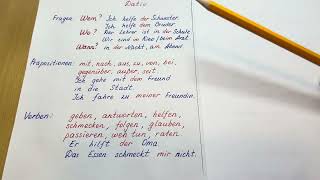 Dativ
Fragen Wem? Ich helfe der Schwester.
Ich helfe dem Bruder
Wo? Der Lehrer ist in der Schule
Wir sind im Kino/beim Arzt
Wann? in der Nacht, am Abend
Präpositionen: mit, nach, aus, zu, von, bei,
gegenüber, außer, seit
Ich gehe mit dem Freund
in die Stadt.
Ich fahre zu meiner Freundin.
Verben: geben, antworten, helfen,
schmecken, folgen, glauben,
passieren, weh tun, raten.
Er hilft der Oma
Das Essen schmeckt mir nicht.